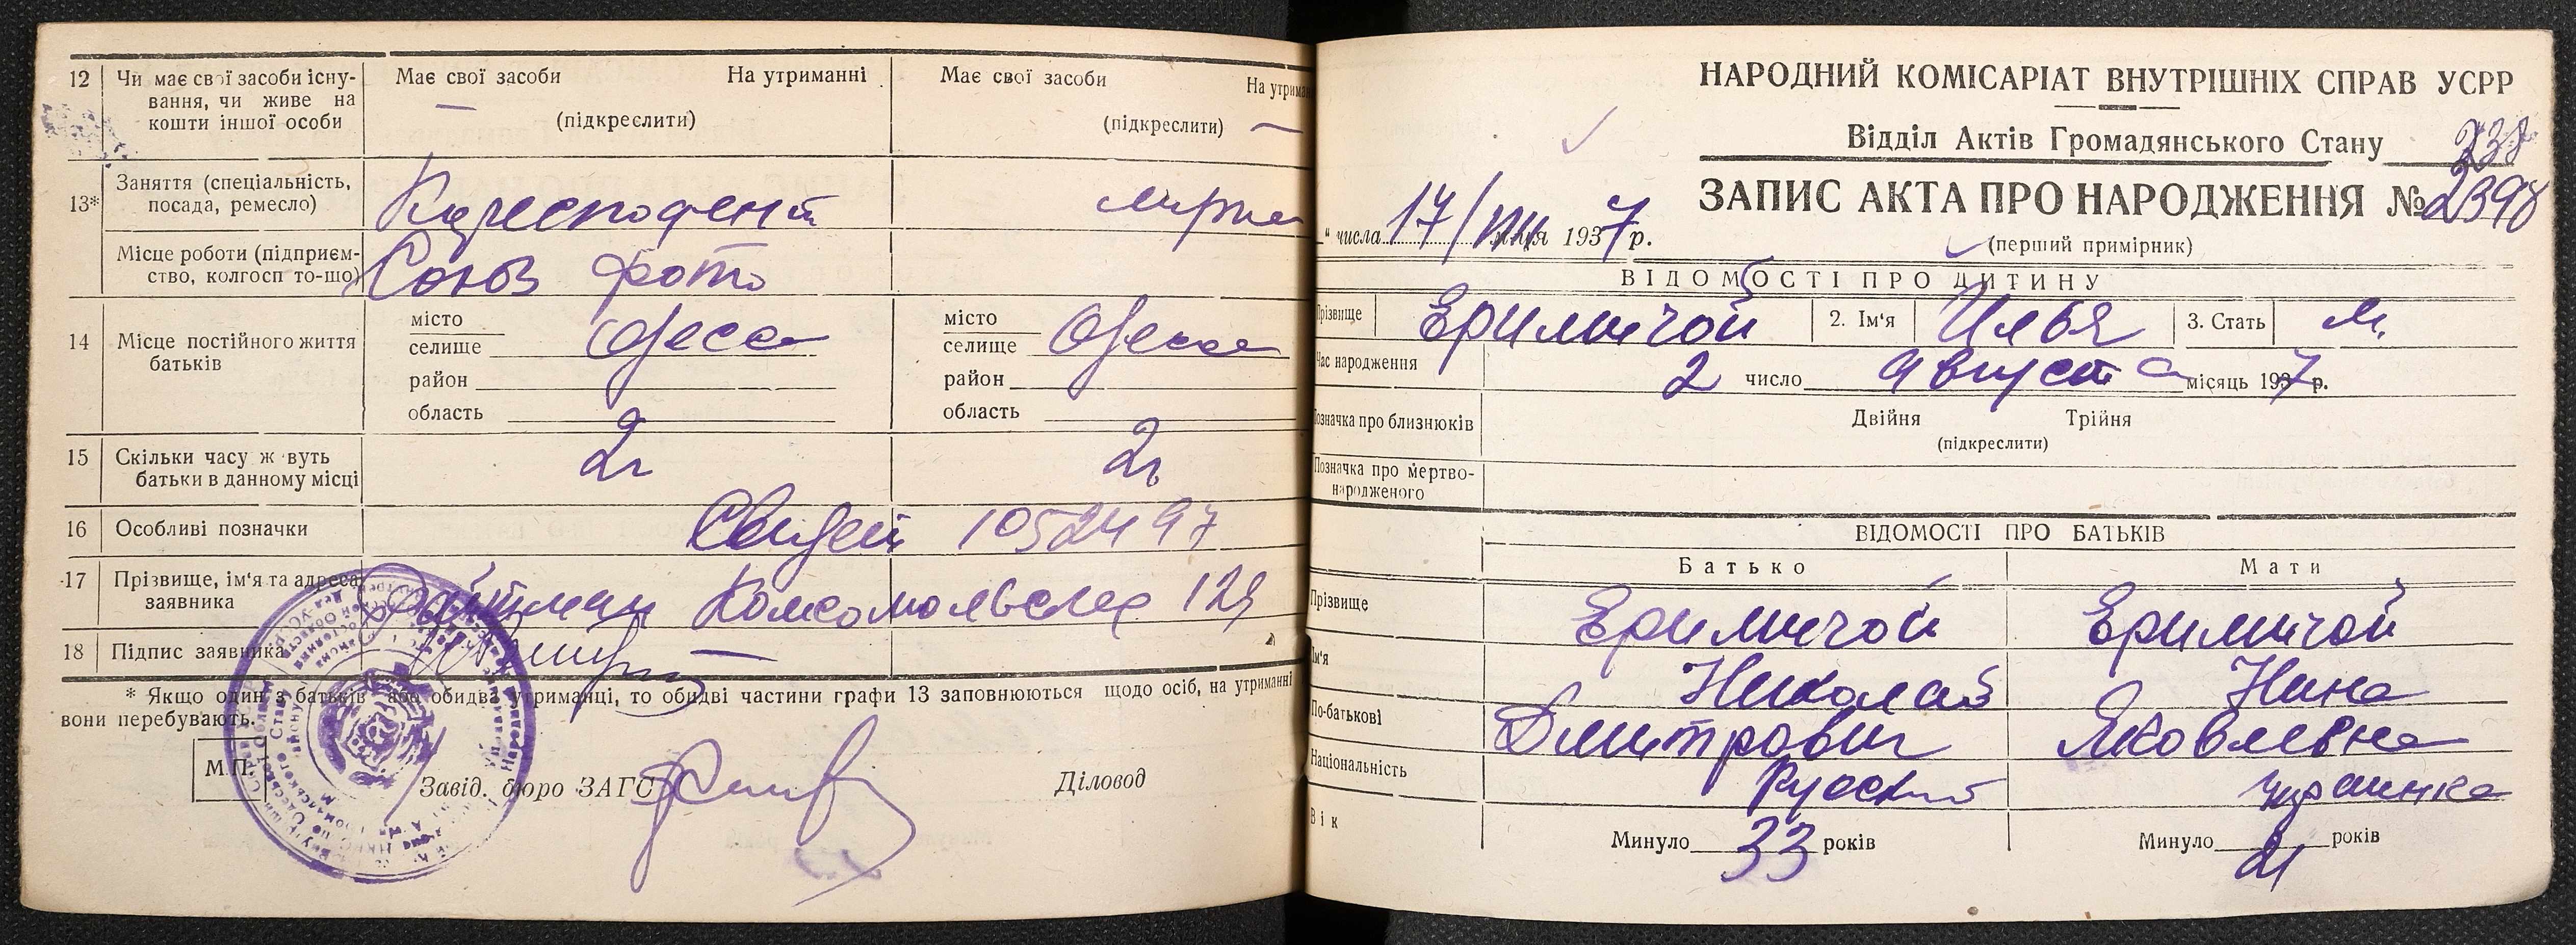 12 Чи має свої засоби існу-
вання, чи живе на
кошти іншої особи
Має свої засоби На утриманні
(підкреєлити)
Має свої засоби На утриман
(підкреслити)
13* Заняття (спеціальність,
посада, ремесло)
Коресподент
Місце роботи (підприєм-
ство, колгосп то-що)
Союз фото
14 Місце постійного життя
батьків
місто
селище Одесса
район
область
місто
селище Одесса
район
область
15 Скільки часу ж вуть
батьки в данному місці
2г 2г
16 Особливі позначки
Свидет 1052497
17 Прізвище, ім'я та адреса
заявника
Комсомольская 129
18 Підпис заявника
* Якщо один з батьків або обидві утриманці, то обидві частини графи 13 заповнюються щодо осіб, на утриманні
вони перебувають.
М.П.
Завід. бюро ЗАГС Діловод
НАРОДНИЙ КОМІСАРІАТ ВНУТРІШНІХ СПРАВ УСРР
Відділ Актів Громадянського Стану 238
ЗАПИС АКТА ПРО НАРОДЖЕННЯ № 2398
„ числа 17/VIII м-ця 1937 р.
(перший примірник)
ВІДОМОСТІ ПРО ДИТИНУ
Прізвище Еримичой 2. Ім'я Илья 3. Стать м.
Час народження 2 число августа місяць 1937 р.
Позначка про близнюків Двійня Трійня
(підкреслити)
Позначка про мертво-
народженого
ВІДОМОСТІ ПРО БАТЬКІВ
Батько Мати
Прізвище Еримичой Еримичой
Ім'я Николай Нина
По-батькові Дмитрович Яковлевна
Національність Русский украинка
Вік Минуло 33 років Минуло 21 років